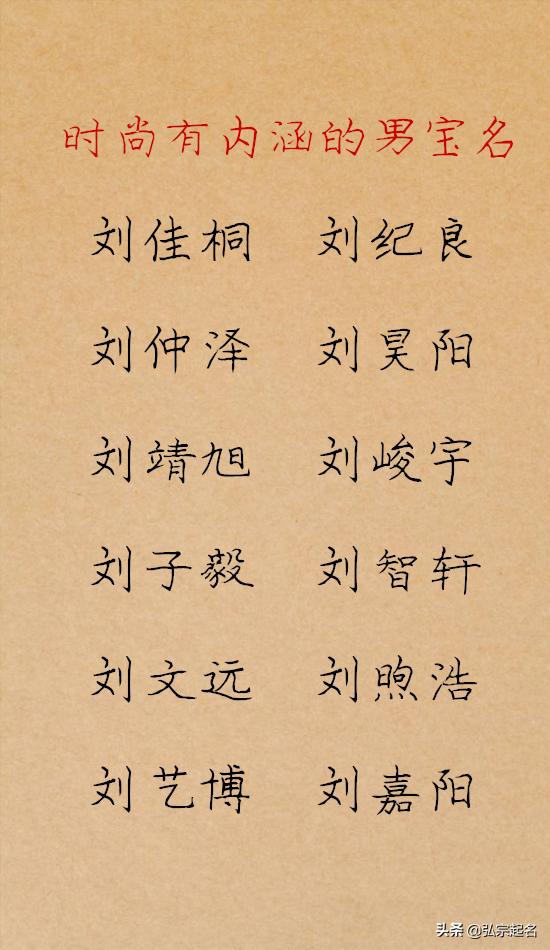 时尚有内涵的男宝名
刘佳桐 刘纪良
刘仲泽 刘昊阳
刘靖旭 刘峻宇
刘子毅 刘智轩
刘文远 刘煦浩
刘艺博 刘嘉阳
头条 @弘宗起名